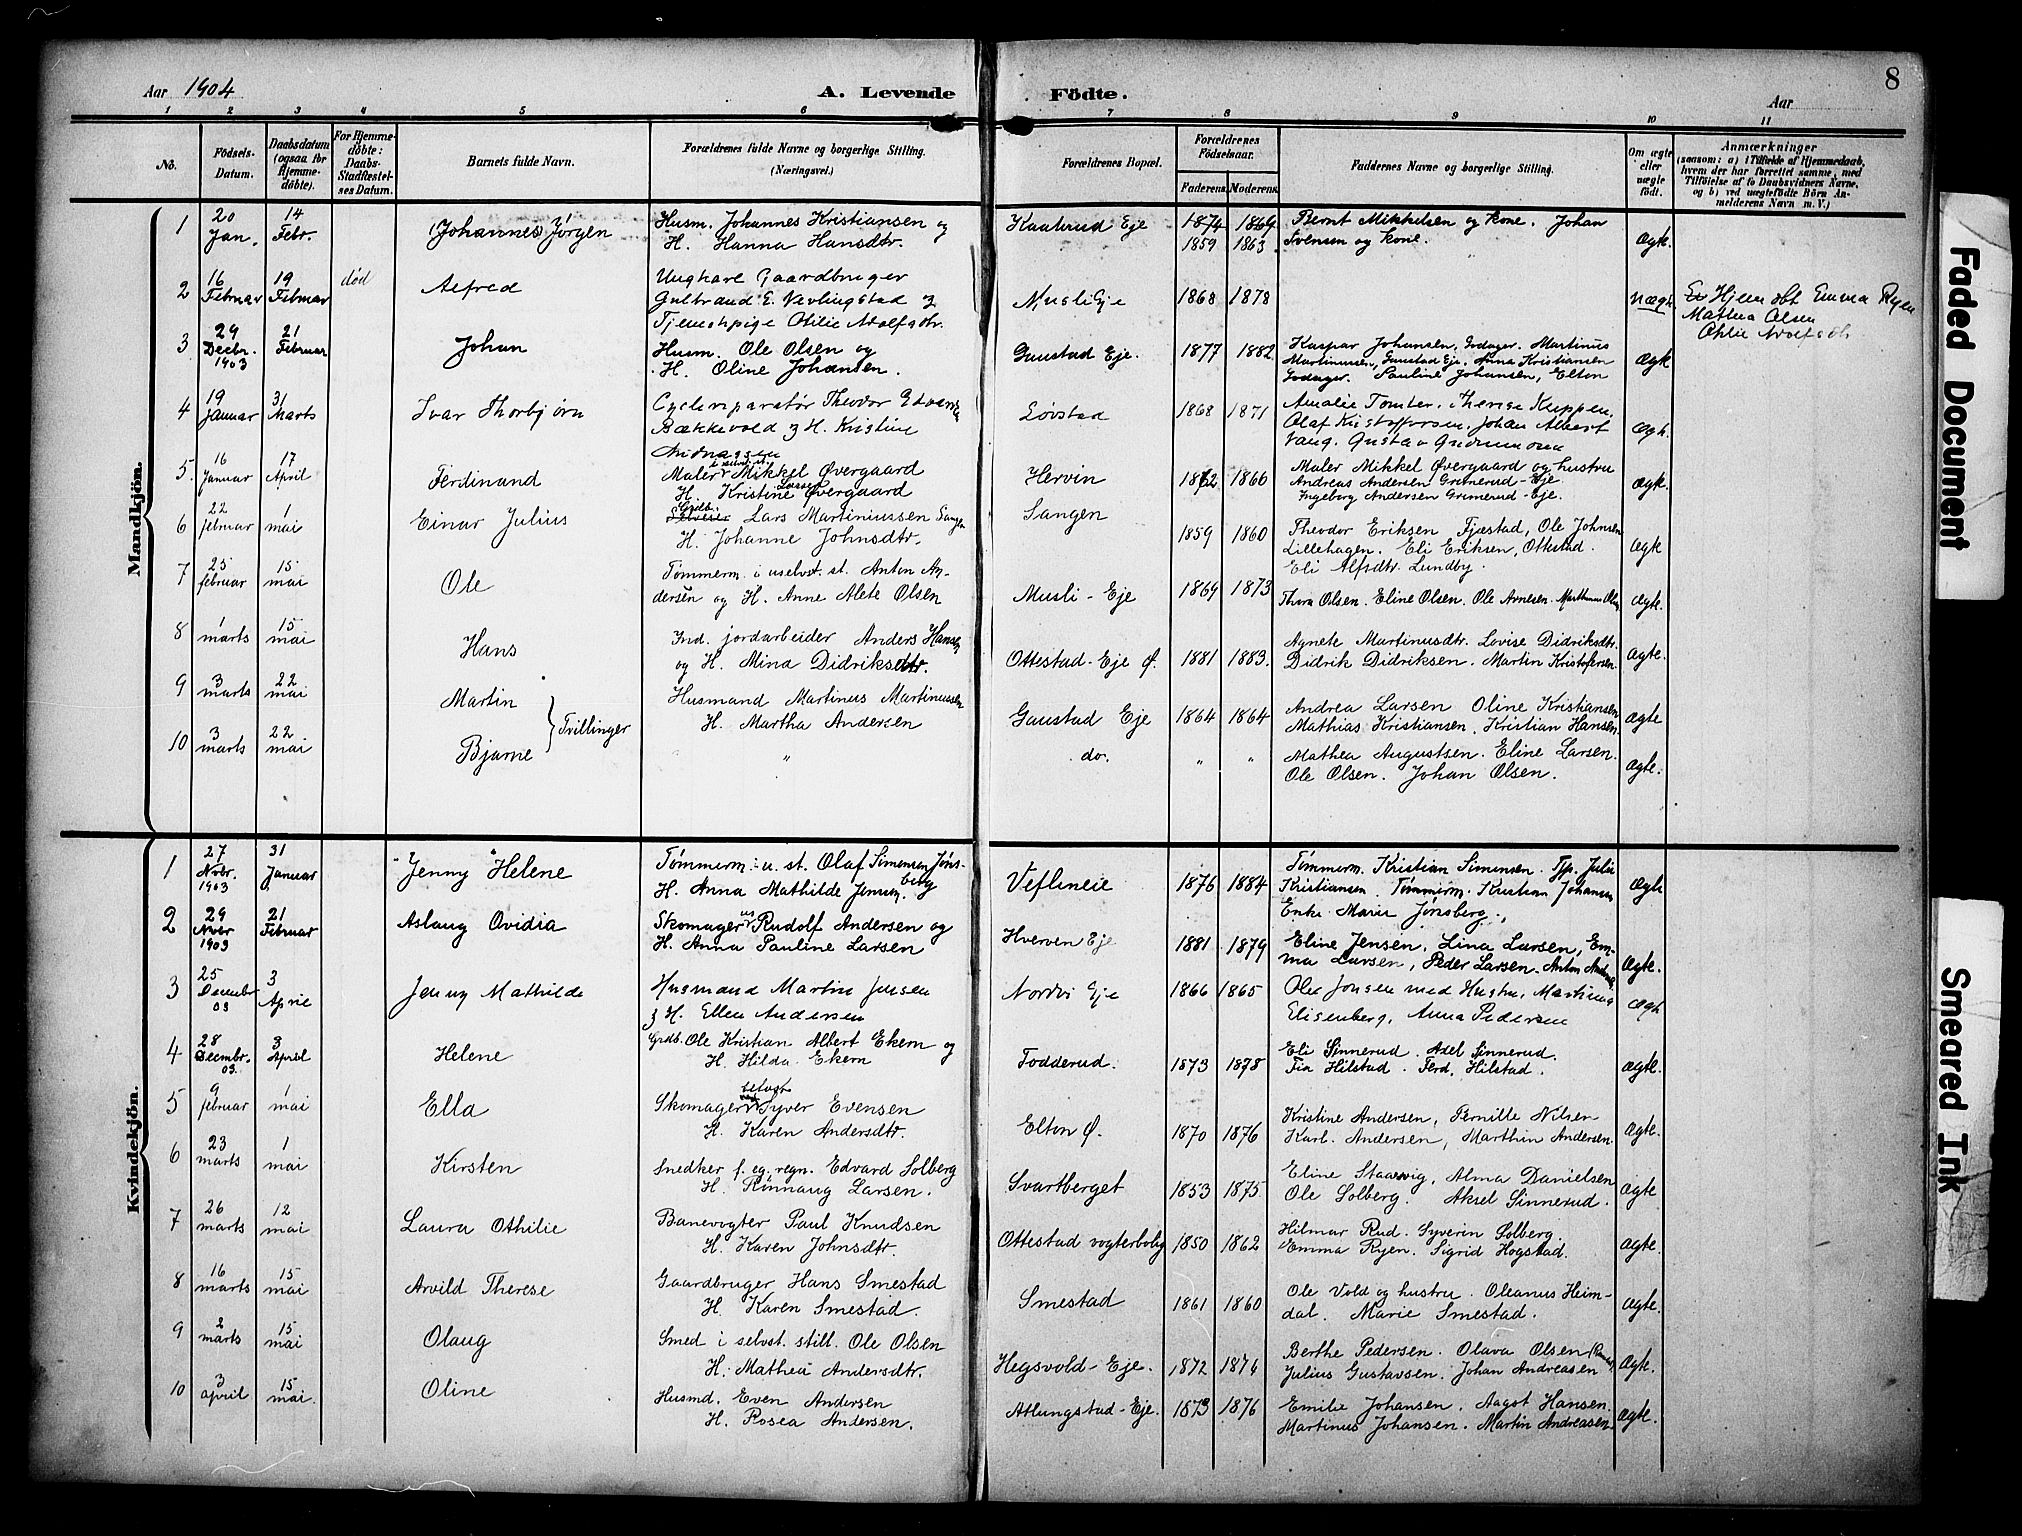 8
Aar 1904
A. Levende
Födte.
Aar
1 2 3 4 5 6 7 8 9 10 11
No.
Födsels-
Datum.
Daabsdatum
(ogsaa for
Hjemme-
döbte).
For Hjemme-
döbte:
Daabs-
Stadfæstel-
ses Datum.
Barnets fulde Navn.
Forældrenes fulde Navne og borgerlige Stilling.
(Næringsvei.)
Forældrenes Bopæl.
Forældrenes
Födselsaar.
Faderens. Moderens.
Faddernes Navne og borgerlige Stilling.
Om ægte
eller
uægte
födt.
Anmærkninger
(saasom: a) i Tilfælde af Hjemmedaab,
hvem der har forrettet samme, med
Tilföielse af to Daabsvidners Navne,
og b) ved uægtefödte Börn An-
melderens Navn m. V.)
Mandkjön.
1 20 Jan. 14 Febr. Johannes Jørgen
Husm. Johannes Kristiansen og
H. Hanna Hansdtr.
Kaaterud Eje 1874 1869
1859 1863
Bernt Mikkelsen og Kone. Johan
Svensen og Kone.
Ægte.
2 16 Februar 19 Februar død Alfred
Ungkarl Gaardbruger
Gulbrand E. Vevlingstad &
Tjenestepige Otilie Adolfsdtr.
Musli Eje 1868 1878
uægte
Hjemdbt Emma Ryen
Mathea Olsen
Otilie Adolfsdtr
3 29 Decbr. 1903 21 Februar Johan
Husm. Ole Olsen og
H. Oline Johansen.
Gaustad Eje. 1877 1882
Kaspar Johansen, Godager. Martinus
Martinussen, Gaustad Eje. Anna Kristiansen
Godager. Pauline Johansen, Elton
Ægte
4 19 Januar 3 Marts Ivar Thorbjørn
Theodor Edvardsen
Bækkevold & H. Kristine
Løvstad 1868 1871
Amalie Tomter, Therese Kuppen,
Olaf Kristoffersen, Johan Albert
Vang, Gustav Gudmundsen
Ægte.
5 16 Januar 17 April Ferdinand
Maler i selvst. st. Mikkel Øvergaard
H. Kristine Larsen Øvergaard
Hervin 1862 1866
Maler Mikkel Øvergaard og hustru
Andreas Andersen Grimerud-Eje
Ingeborg Andersen Grimerud-Eje.
Ægte.
6 22 februar 1 mai Einar Julius
Grdb. Lars Martiniussen Sangen
H. Johanne Johnsdtr.
Sangen
1859 1860
Theodor Eriksen Fjæstad, Ole Johnsen
Lillehagen. Eli Eriksen, Ottestad.
Eli Alfsdtr. Lundby.
Ægte
7 25 februar 15 mai Ole
Tømmerm. i uselvst. st. Anton An-
dersen og H. Anne Alete Olsen
Musli-Eje 1869 1873
Thora Olsen. Eline Olsen. Ole Arnesen. Marthinus Olsen
Ægte.
8 1 marts 15 mai Hans
Ind. jordarbeider Anders Hansen
og H. Mina Didriksdtr.
Ottestad-Eje Ø. 1881 1883.
Agnete Martinusdtr. Lovise Didriksdtr.
Didrik Didriksen. Martin Kristofersen.
Ægte.
9 3 marts 22 mai Martin
Husmand Martinus Martinussen
H. Martha Andersen
Gaustad Eje 1864 1864
Andrea Larsen Oline Kristiansen
Mathias Kristiansen, Kristian Hansen.
Ægte
Tvillinger
10 3 marts 22 mai Bjarne
" do. " "
Mathea Augustsen. Eline Larsen.
Ole Olsen. Johan Olsen.
Ægte.
Kvindekjön.
1 27 Nvbr. 1903 31 Januar "Jenny" Helene
Tømmerm. i u. st. Olaf Simensen Jøns-
berg
H. Anna Mathilde Jensen.
Veflineie 1876 1884
Tømmerm. Kristian Simensen. Tjp. Julie
Kristiansen. Tømmerm. Kristian Johansen
Enke Marie Jønsberg.
Ægte
2 29 Nvbr 1903 21 Februar Aslaug Ovidia
Skomager us Rudolf Andersen og
H. Anna Pauline Larsen
Hverven Eje 1881 1879
Eline Jensen, Lina Larsen, Em-
ma Larsen, Peder Larsen. Anton Andersen
Ægte.
3 25 December 03 3 April Jenny Mathilde
Husmand Martin Jensen
& H. Ellen Andersen
Nordvi Eje 1866 1865
Ole Jonsen med Hustru, Martinus
Elisenberg, Anna Pedersen
Ægte
4 28 Decembr. 03. 3 April Helene
Grdb. Ole Kristian Albert Ekern og
H. Hilda Ekern
Fodderud. 1873 1878
Eli Sinnerud. Axel Sinnerud.
Tia Hilstad. Ferd. Hilstad.
Ægte.
5 9 februar 1 mai Ella
Skomager Syver Evensen
H. Karen Andersdtr.
Elton Ø. 1870 1876
Kristine Andersen, Pernille Nilsen
Karl. Andersen, Marthin Andersen.
Ægte.
6 23 marts 1 mai Kirsten
Snedker f. eg. regn. Edvard Solberg
H. Rønnaug Larsen.
Svartberget 1853 1875
Eline Staavig, Alma Danielsen
Ole Solberg. Aksel Sinnerud.
Ægte
7 26 marts 12 mai Laura Othilie
Banevogter Paul Knudsen
H. Karen Johnsdtr.
Ottestad vogterbolig 1850 1862
Hilmar Rud. Syverin Solberg.
Emma Ryen. Sigrid Hogstad.
Ægte.
8 16 marts 15 mai Arvild Therese
Gaardbruger Hans Smestad
H. Karen Smestad.
Smestad 1861 1860
Ole Vold og hustru. Oleanus Heim-
dal. Marie Smestad.
Ægte.
9 2 marts 15 mai Olaug
Smed i selvst. still. Ole Olsen
H. Mathea Andersdtr.
Hegsvold-Eje. 1872 1876
Berthe Pedersen. Olava Olsen
Julius Gustavsen. Johan Andreasen
Ægte.
10 3 april 15 mai. Oline
Husmd. Even Andersen
H. Rosea Andersen.
Atlungstad-Eje. 1873 1876
Emilie Johansen. Aagot Hansen.
Martinus Johansen. Martin Andreasen.
Ægte.
Faded Document
Smeared Ink